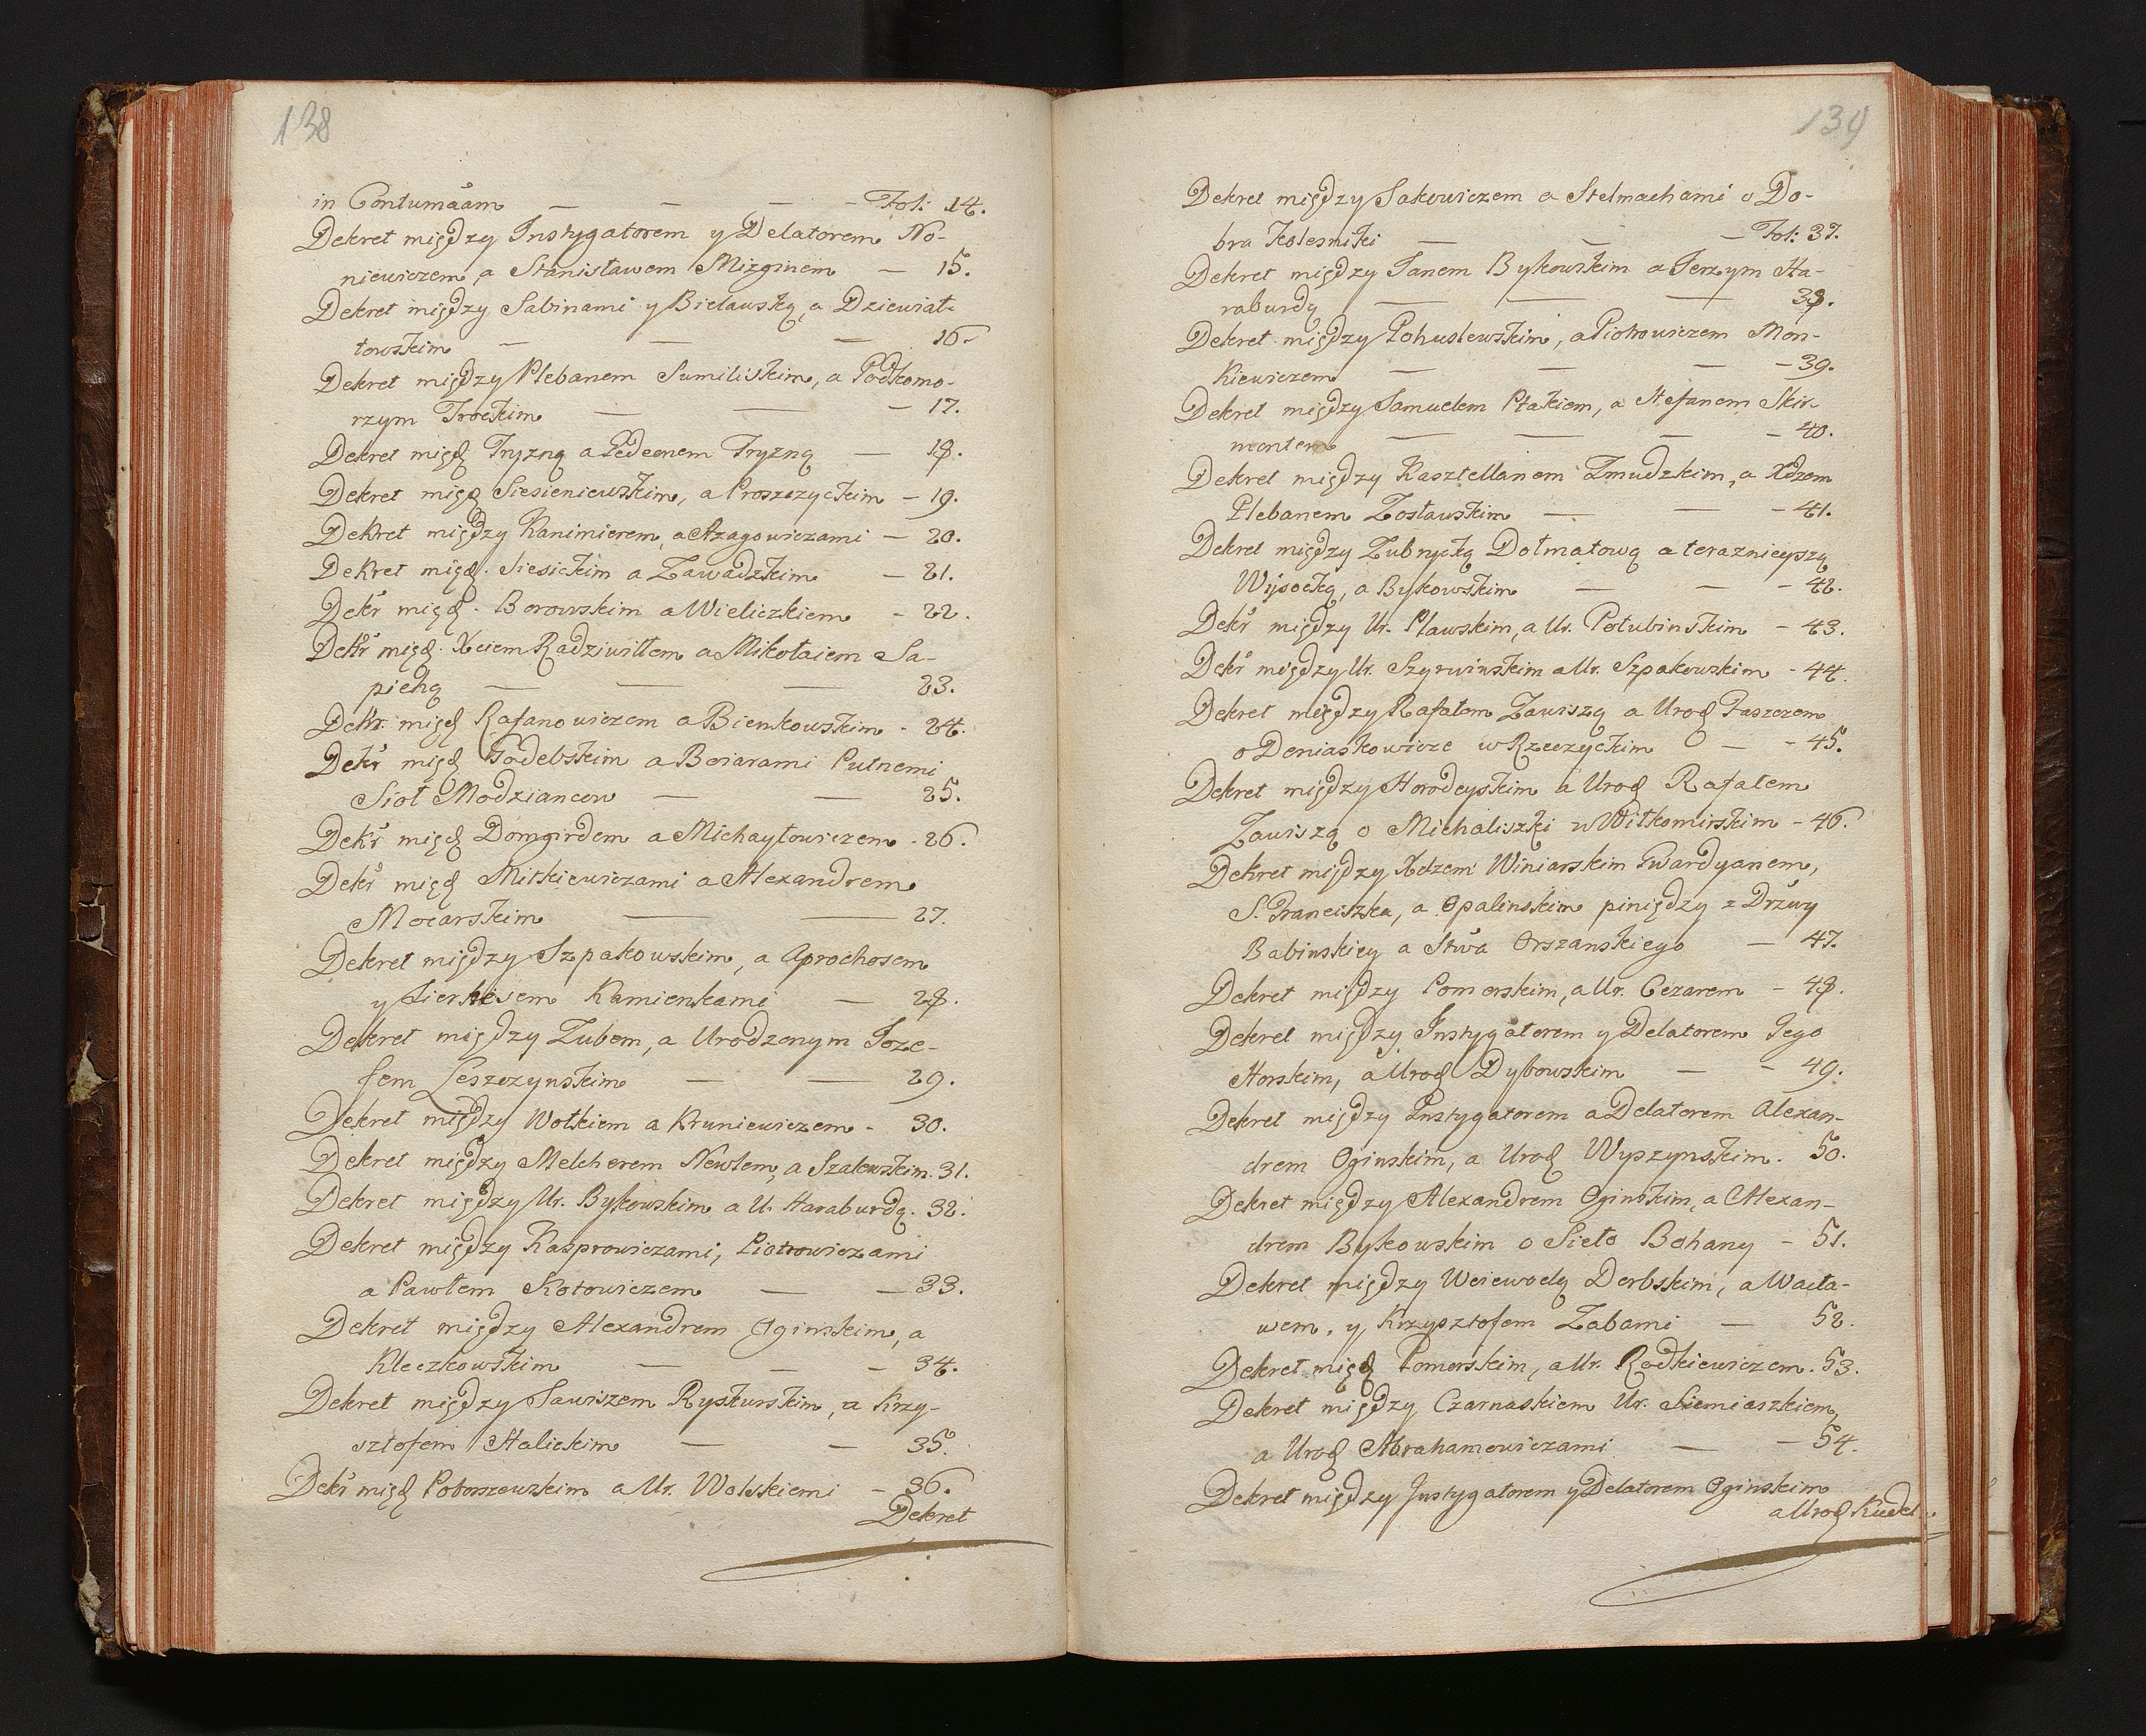 138
in Contumaciam — — — Fol: 14.
Dekret między Instygatorem y Delatorem No-
niewiczem, a Stanisławem Mizginem — 15.
Dekret między Sabinami y Bielawską, a Dziewiał-
towskim — — — 16
Dekret między Plebanem Sumiliskim, a Podkomo-
rzym Trockim — — — 17.
Dekret międ Tryzną a Gedeonem Tryzną — 18.
Dekret międ Siesieniewskim, a Proszczyckim — 19.
Dekret między Kanimierem, a Azagowiczami — 20.
Dekret międ. Siesickim a Zawadzkim — 21.
Dekr międ. Borowskim a Wieliczkiem — 22.
Dekr międ. Xciem Radziwiłłem a Mikołaiem Sa-
piehą — — — 23.
Dekr. międ Rafanowiczem a Bienkowskim - 24.
Dekr międ Godebskim a Boiarami Putnemi
Sioł Modziancow — — 25.
Dekr międ Domgirdem a Michayłowiczem - 26.
Dekr międ Mitkiewiczami a Alexandrem
Mocarskim — — 27.
Dekret między Szpakowskim, a Aprochosem
y Kamienkami — 28.
Dekret między Zubem, a Urodzonym Joze-
fem Leszczynskim — — 29.
Dekret między Wołkiem a Kruniewiczem - 30.
Dekret między Melcherem Newlem, a Szalewskim. 31.
Dekret między Ur. Bykowskim a U. Haraburdą. 32.
Dekret między Kasprowiczami, Piotrowiczami
a Pawłem Kotowiczem — — 33.
Dekret między Alexandrem Oginskim, a
Kleczkowskim — — — 34.
Dekret między Sawiszem Ryskurskim, a Krzy-
sztofem Halickim — — 35.
Dekr międ Potorszewskim a Ur. Wolskiemi — 36.
Dekret
139
Dekret między Sakowiczem a Stelmachami o Do-
bra Kolesniki — — — Fol: 37.
Dekret między Janem Bykowskim a Jerzym Ha-
raburdą — — — 38.
Dekret między Pohuslewskim, a Piotrowiczem Mon-
kiewiczem — — — 39.
Dekret między Samuelem Ptakiem, a Stefanem Skir-
montem — — — 40.
Dekret między Kasztellanem Zmudzkim, a Xdzem
Plebanem Zosławskim — — 41.
Dekret między Zubnycką Dołmatową a teraznieyszą
Wysocką, a Bykowskim — — 42.
Dekr między Ur. Pławskim, a Ur. Połubinskim — 43.
Dekr między Ur. Szyrwinskim a Ur. Szpakowskim - 44.
Dekret między Rafałem Zawiszą a Urod Paszczem
o Deniaskowicze w Rzeczyckim — 45.
Dekret między Horodeyskim a Urod Rafałem
Zawiszą o Michaliszki w Wiłkomirskim — 46.
Dekret między Xdzem Winiarskim Gwardyanem,
S. Franciszka, a Opalinskim piniędzy z Drzwy
Babinskiey a Stwa Orszanskiego — 47.
Dekret między Pomorskim, a Ur. Cezarem — 48.
Dekret między Instygatorem y Delatorem Jego
Horskim, a Urod Dybowskim — — 49.
Dekret między Instygatorem a Delatorem Alexan-
drem Oginskim, a Urod Wyszynskim. 50.
Dekret między Alexandrem Oginskim, a Alexan-
drem Bykowskim o Sieło Bohany — 51.
Dekret między Woiewodą Derbskim, a Wacła-
wem, y Krzysztofem Zabami — 52.
Dekret międ Pomorskim, a Ur. Rodkiewiczem. 53.
Dekret między Czarnaskiem Ur. Siemiaszkiem,
a Urod Abrahamowiczami — — 54.
Dekret między Instygatorem y Delatorem Oginskim
a Urod